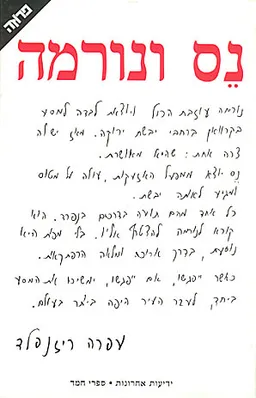 פרוזה
נֵס ונורמה
נורמה עוזבת הכול ויוצאת לבדה למסע
בקרוואן ברחבי יבשת ירוקה. מאז יש לה
צרה אחת: שהיא מאושרת.
נס יוצא ממפעל האזעקות, עולה על מטוס
ומגיע לאותה יבשת.
כל אחד מהם תועה בדרכים בנפרד. הוא
קורא לנורמה להצטרף אליו. בלי מפת היא
נוסעת, בדרך ארוכה ומלאה הרפתקאות.
כאשר ייפגשו, אם ייפגשו, ימשיכו את המסע
ביחד, לעבר העיר היפה ביותר בעולם.
עפרה ריזנפלד
ידיעות אחרונות • ספרי חמד